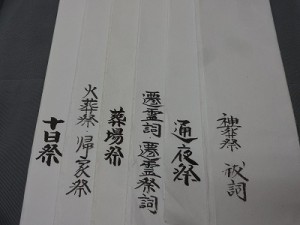 神葬祭 祓詞
通夜祭
遷霊詞・遷霊祭詞
葬場祭
火葬祭・帰家祭
十日祭